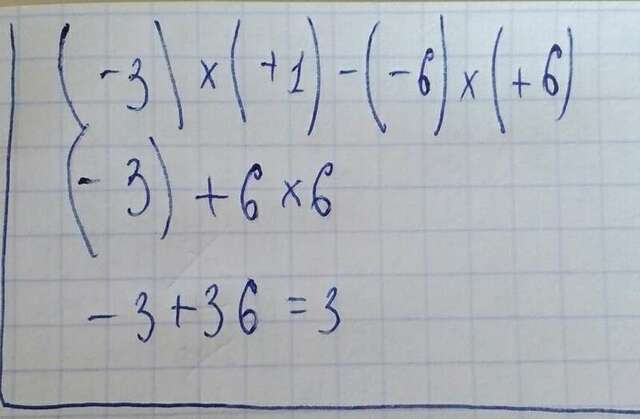 (-3) × (+1) - (-6) × (+6)
(-3) + 6 × 6
-3 + 36 = 3